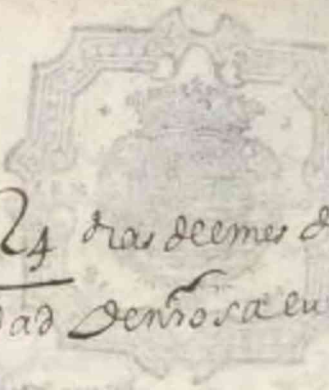 24 dias del mes d
dad de nrõ sa eu